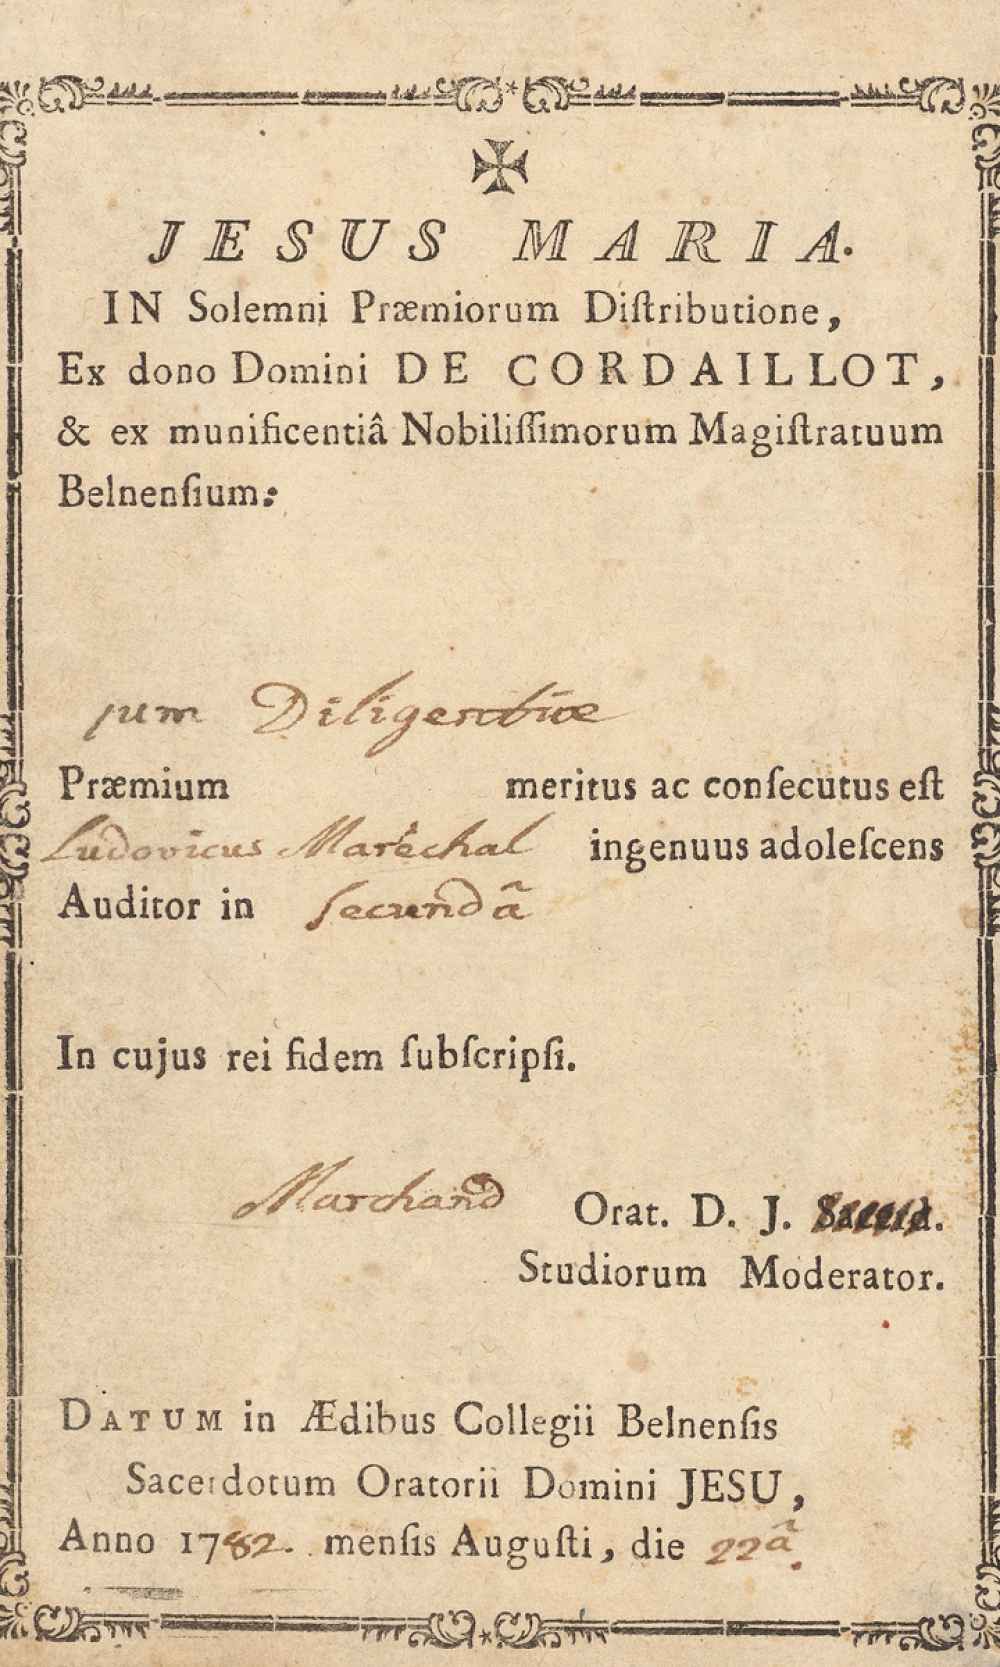 JESUS MARIA.
IN Solemni Præmiorum Diſtributione,
Ex dono Domini DE CORDAILLOT,
& ex munificentiâ Nobiliſſimorum Magiſtratuum
Belnenſium:
1um Diligentiæ
Præmium meritus ac conſecutus eſt
Ludovicus Maréchal ingenuus adoleſcens
Auditor in ſecundâ
In cujus rei fidem ſubſcripſi.
Marchand Orat. D. J. Sacerd.
Studiorum Moderator.
DATUM in Ædibus Collegii Belnenſis
Sacerdotum Oratorii Domini JESU,
Anno 1782. menſis Auguſti, die 22â.